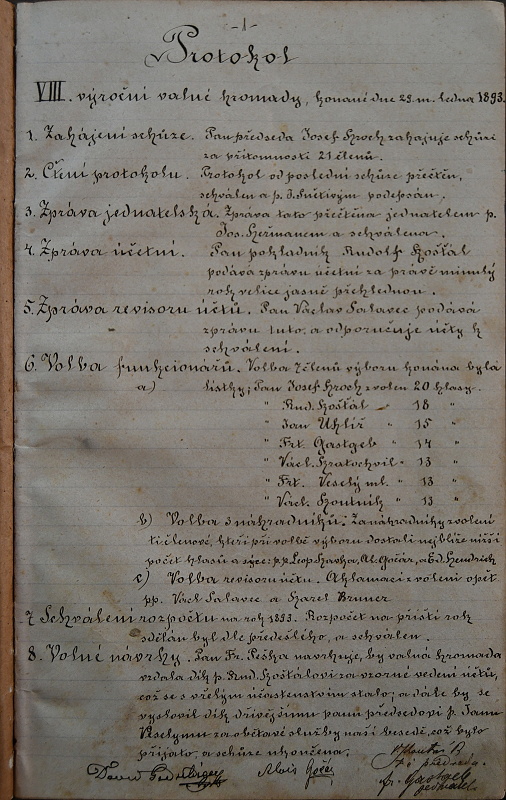 -1-
Protokol
VIII. výroční valné hromady, konané dne 29. m. ledna 1893.
1. Zahájení schůze. Pan předseda Josef Kroch zahajuje schůzi
za přítomnosti 21 členů.
2. Čtení protokolu. Protokol od poslední schůze přečten,
schválen a p. J. podepsán.
3. Zpráva jednatelská. Zpráva tato přečtěna jednatelem p.
Jos. Heřmanem a schválena.
4. Zpráva účetní. Pan pokladník Rudolf Košťál
podává zprávu účetní za právě minulý
rok velice jasně přehlednou.
5. Zpráva revisorů účtů. Pan Václav Salavec podává
zprávu tuto, a odporučuje účty k
schválení.
6. Volba funkcionářů. Volba 7 členů výboru konána byla
a) lístky; Pan Josef Kroch zvolen 20 hlasy.
" Rud. Košťál - 18 "
" Jan Uhlíř " 15 "
" Frt. Gastgeb " 14 "
" Václ. Kratochvil " 13 "
" Frt. Veselý ml. " 13 "
" Václ. Koutník " 13 "
b) Volba 3 náhradníků. Za náhradníky zvoleni
ti členové, kteří při volbě výboru dostali nejblíže nižší
počet hlasů a sice: pp. Leop. Havka, Al. Gočár, a Ed. Hendrich
c) Volba revisorů účtů. Aklamací zvoleni opět
pp. Václ. Salavec a Karel Bruner
7. Schválení rozpočtu na rok 1893. Rozpočet na příští rok
sdělán byl dle předešlého, a schválen.
8. Volné návrhy. Pan Fr. Peška navrhuje, by valná hromada
vzdala dík p. Rud. Košťálovi za vzorné vedení účtů,
což se s vřelým účastenstvím stalo, a dále by se
vyslovil dík dřívějšímu panu předsedovi p. Janu
Veselýmu za obětavé služby naší besedě, což bylo
přijato, a schůze ukončena.
předseda.
Alois Gočár
Fr. Gastgeb
jednatel